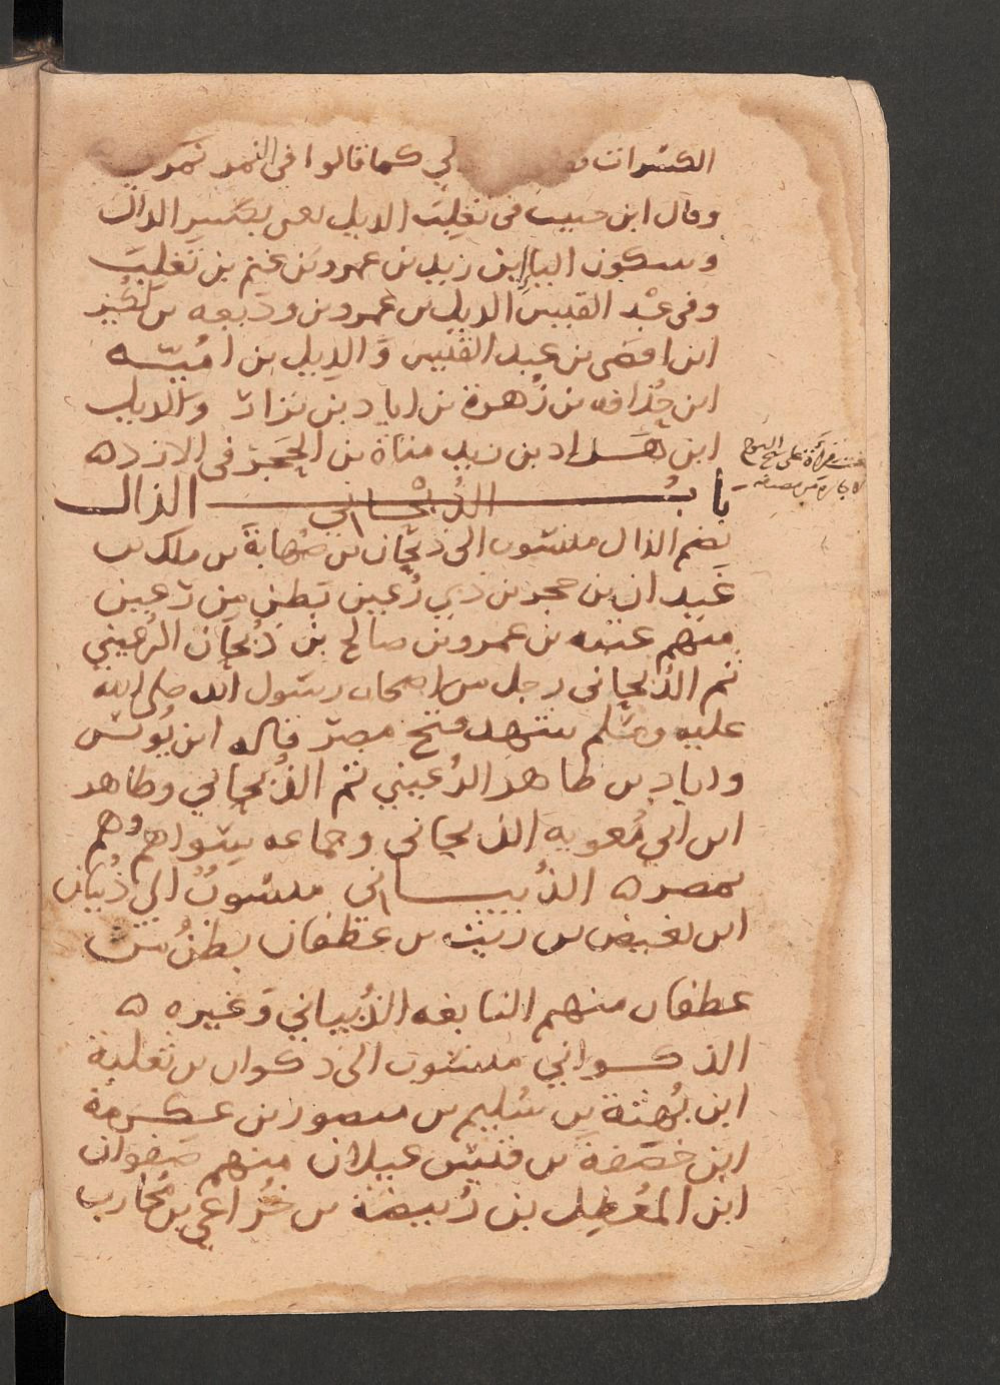 الكسرات كما قالوا في النمر نمري
وقال ابن حبيب في تغلب الديل يعني بكسر الدال
وسكون الياء ابن زيد بن عمرو بن غنم بن تغلب
وفي عبد القيس الديل بن عمرو بن وديعه بن لكيز
ابن افصى بن عبد القيس والديل بن اميّه
ابن حُذافه بن زُهرة بن اياد بن نزار والديل
ابن هداد بن زيد مناة بن الحَجر في الازد ه
بابُ الذال
الذُبْحاني
بضم الذال منسوب الى ذبحان بن
بن ملك بن
بن حجر بن ذي رُعين بطن من رعين
منهم بن عمرو بن صالح بن ذُبحان الرُعيني
ثم الذبحاني رجل من اصحاب رسول الله صلى الله
عليه وسلم شهد فتح مصر قاله ابن يُونس
واياد بن طاهر الرُعيني ثم الذُبحاني وطاهر
ابن ابي مُعويه الذبحاني وجماعه سواهم وهُم
بمصر ه الذُبيــــاني منسوبٌ الى ذُبيان
ابن بغيض بن ريث بن غطفان بطنٌ من
غطفان منهم النابغه الذُبياني وغيره ه
الذكــواني منسوب الى ذكوان بن ثعلبة
ابن بُهثة بن سُليم بن منصور بن عكرمة
ابن خصَفة بن قيس عيلان منهم صفوان
ابن المُعطل بن رُبيضة بن خُزاعي بن مُحارب